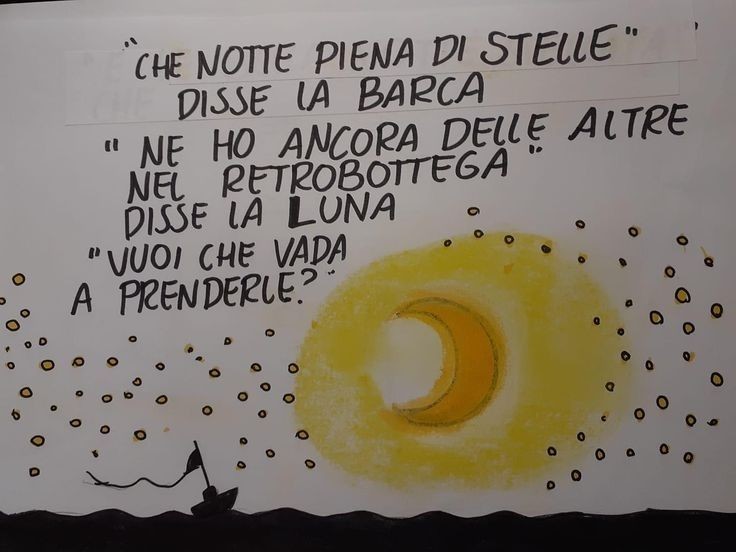 "CHE NOTTE PIENA DI STELLE"
DISSE LA BARCA
"NE HO ANCORA DELLE ALTRE
NEL RETROBOTTEGA"
DISSE LA LUNA
"VUOI CHE VADA
A PRENDERLE?"